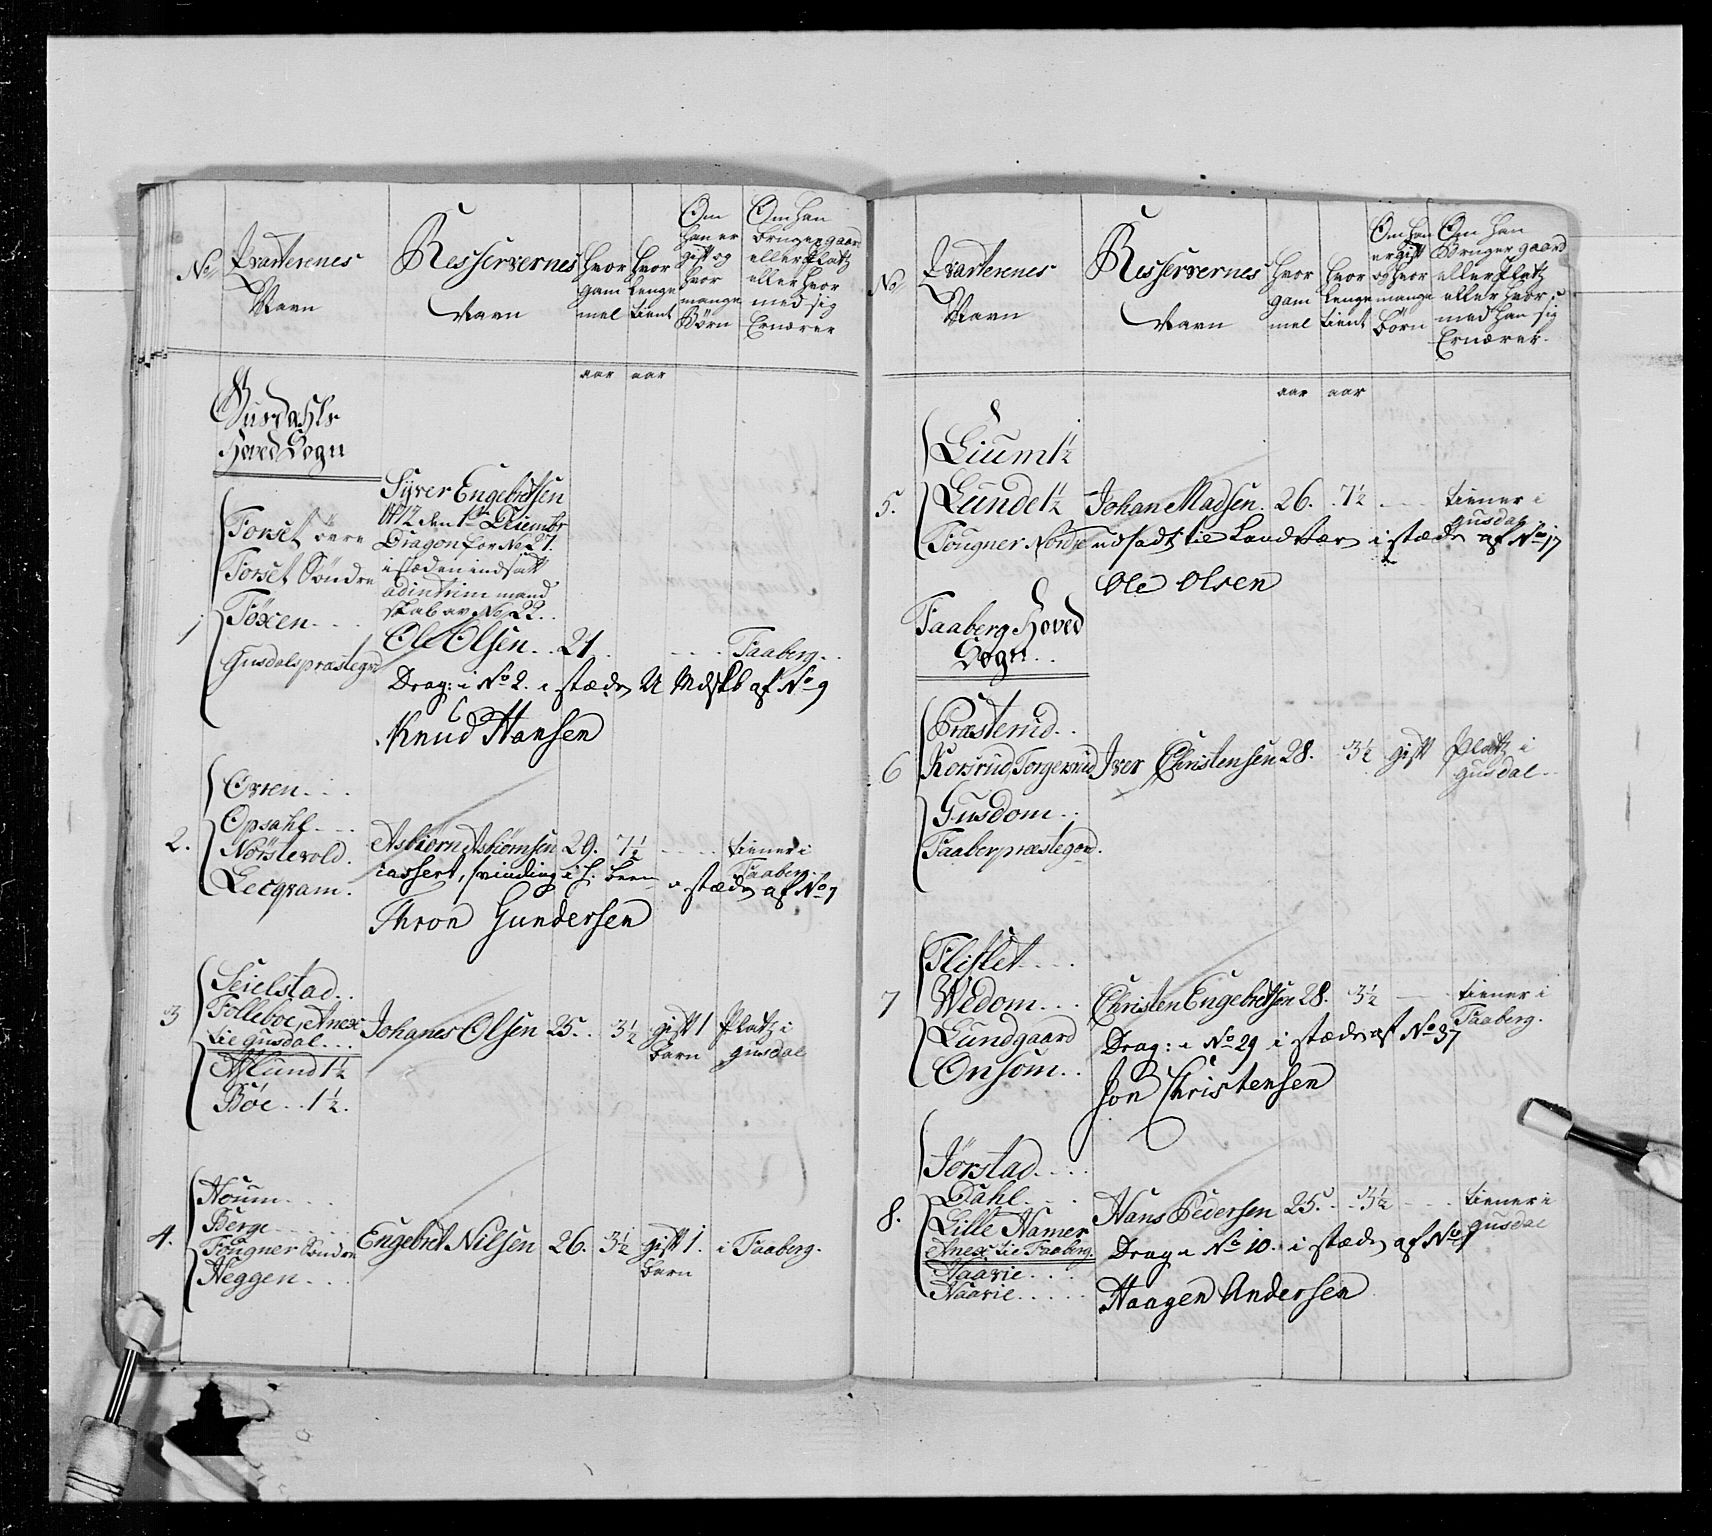 No
Qvarterenes
Navn
Resservernes
Navn
Hvor
gam
mel
Hvor
lenge
tient
Om
Han er
gift og
hvor
mange
Børn
Om Han
bruger gaard
eller Platz
eller hvor
med sig
Ernærer
aar aar
Gusdahls
Hoved Sogn
1
Forset øvre
Forset Søndre
Foxen
Gusdals præstegrd
Syver Engebretsen
den 1te Decembr
Dragon for No 27.
i stæden indsatt
mand
skab av No 22.
Ole Olsen 21. Faaberg
Drag: i No 2. i stæden U Mdskb af No 9
Knud Hansen
2.
Evien
Opsahl
Nørstevold.
Lecqram.
Asbiørn Askiømsen 29. 7½ tiener i
Faaberg.
cassert, svinding i h. been i stæden af No 7
Thron Gundersen
3
Seielstad
Folleboe, Anex
tie Gusdal
Aslund 1½
Böe 1½.
Johanes Olsen 25. 3½ gift 1 Platz i
barn gusdal
4.
Houm
Berge
Fougner Söndre
Heggen
Engebret Nilsen 26. 3½ gift 1. i Faaberg.
barn
No
Qvarterenes
Navn
Resservernes
Navn
Hvor
gam
mel
hvor
lenge
tient
Om Han
er gift
og hvor
mange
børn
Om Han
Bruger gaard
eller Platz
eller hvor
med Han sig
Ernærer.
aar aar
5.
Lium 1½
Lunde 1½
Fougner Nordre
Johan Madsen. 26. 7½ tiener i
gusdal
udsadt tie Landvær i stæden af No 17
Ole Olsen
Faaberg Hoved
Sogn
6
Præsterud
Korsrud, Torgersrud
Gusdom
Faaberpræstegord.
Iver Christensen 28. 3½ gift Platz i
gusdal
7
Flislet
Wedom
Lundgaard
Onsom
Christen Engebretsen 28. 3½ tiener i
Faaberg.
Drag: i No 29 i stæden af No 37
Jon Christensen
8.
Jørstad
Dahl
Lille Hamer
Anex tie Faaberg.
Haavie
Naavie
Hans Pedersen 25. 3½ tiener i
gusdal
Drag i No 10. i stæden af No 1
Haagen Andersen